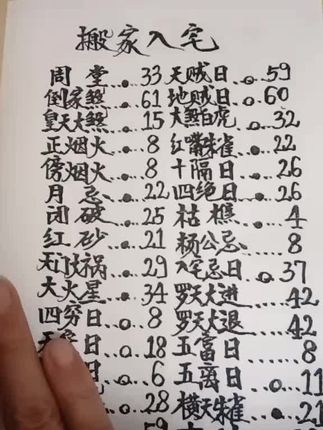 搬家入宅
周堂...33 天贼日...59
倒家煞...61 地贼日...60
皇天大煞...15 大煞白虎...32
正烟火...8 红嘴朱雀...22
傍烟火...8 十隔日...26
月忌...22 四绝日...26
闭破...25 枯樵...4
红砂...21 杨公忌...8
天门大祸...29 入宅忌日...37
大火星...34 罗天大进...42
四穷日...8 罗天大退...42
日...18 五富日...8
6 五离日...11
28 横天朱雀...21